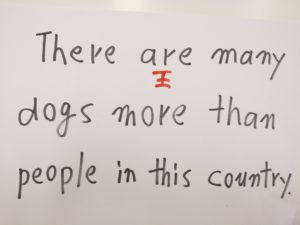 There are many
王
dogs more than
people in this country.